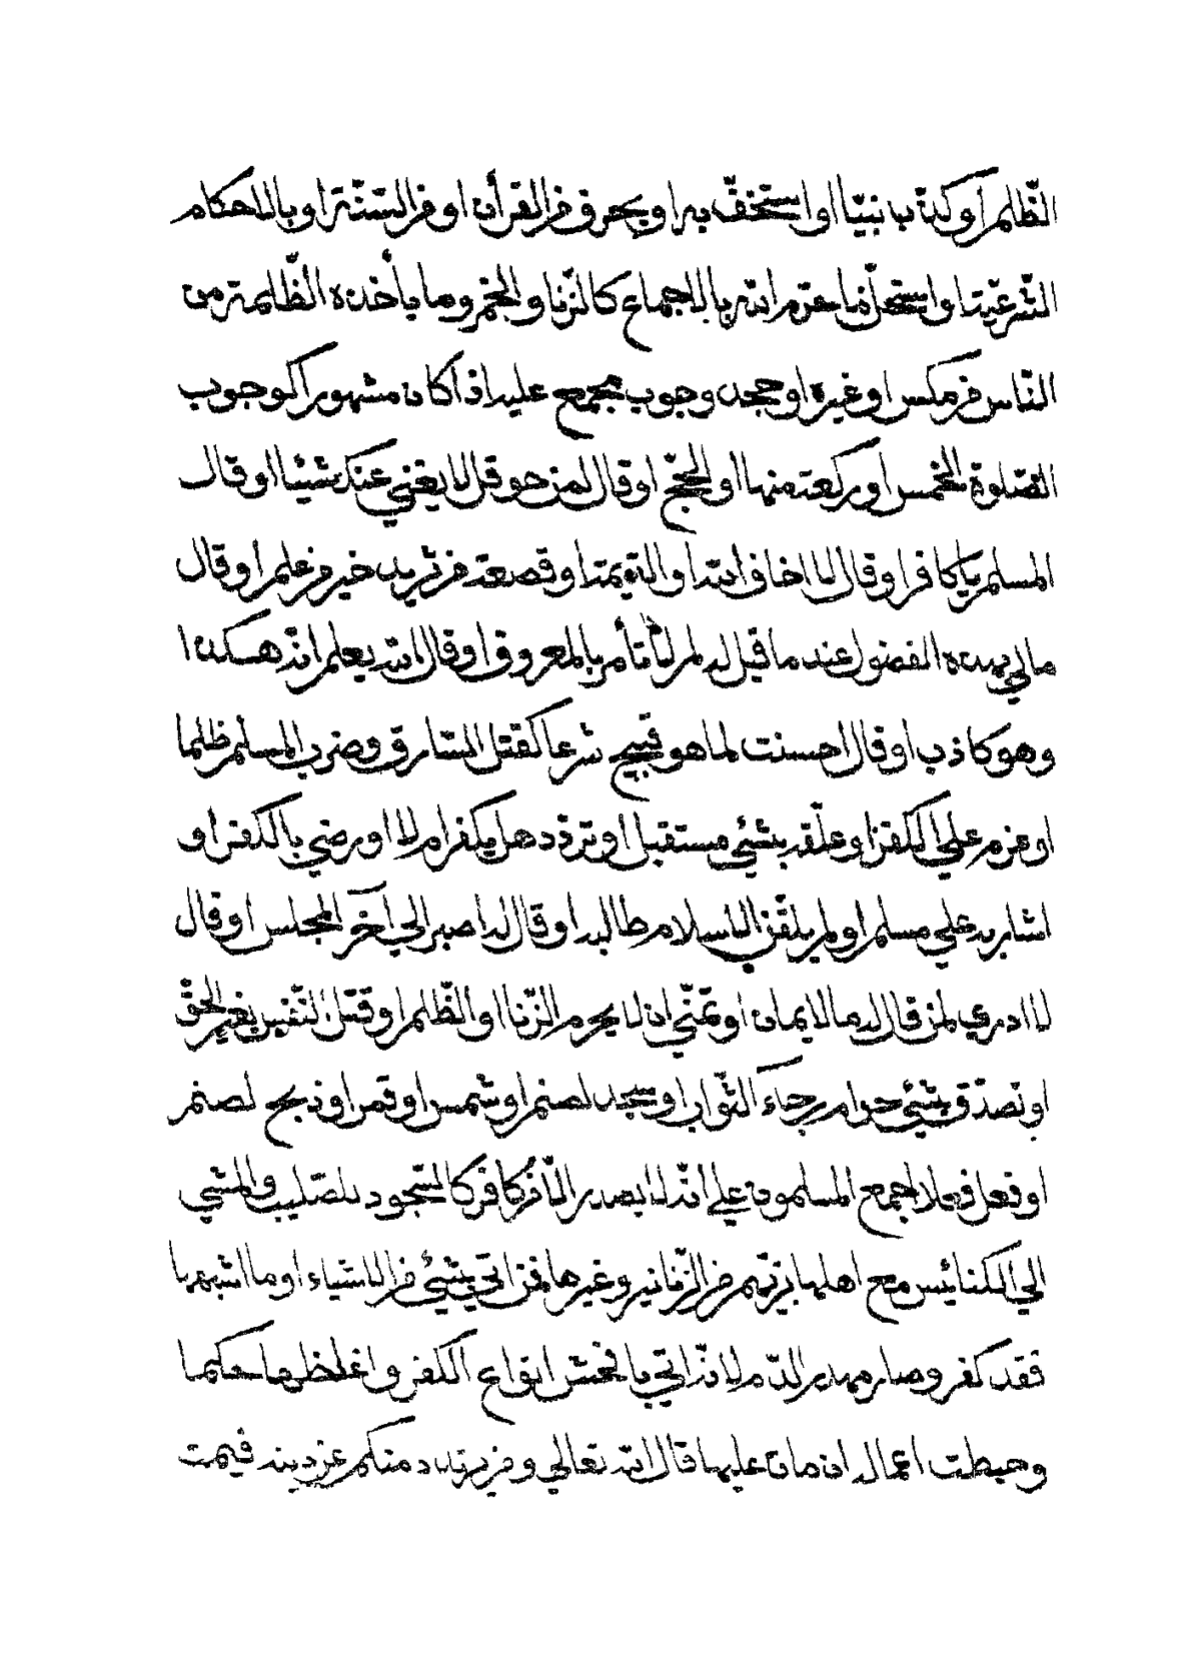 الظّالم أو كذّب نبيّا او استخفّ به او بحرف من القرأن او من السّنّة او بالاحكام
الشّرعيّة او استحلّ ما حرّم الله بالاجماع كالزّنا والخمر وما يأخذه الظّالمة من
النّاس من مكس او غيره او جحد وجوب مجمع عليه اذا كان مشهورا كوجوب
الصّلوة الخمس او ركعة منها او الحجّ او قال لمن حوقل لا يغني عنك شيئا او قال
المسلم يا كافر او قال لا اخاف الله او القيمة او قصعة من ثريد خير من علم او قال
مالي بهذه الفضول عند ما قيل له لم لا تأمر بالمعروف او قال الله يعلم انّه هكذا
وهو كاذب او قال احسنت لما هو قبيح شرعا كقتل السّارق وضرب المسلم ظلما
او عزم على الكفر او علّقه بشئ مستقبل او تردّد هل يكفر ام لا او رضي بالكفر او
اشار به على مسلم او لم يلقّن الاسلام طالبه او قال له اصبر الي آخر المجلس او قال
لا ادري لمن قال له ما الايمان او تمنّي ان لا يحرم الزّنا او الظّالم او قتل النّفس بغير الحقّ
او تصدّق بشئ حرام برجاء الثّواب او سجد لصنم او شمس او قمر او ذبح لصنم
او فعل فعلا اجمع المسلمون علي انّه لا يصدر الّا من كافر كالسّجود للصّليب والمشي
الي الكنائس مع اهلها بزيّهم من الزّنانير وغيرها فمن اتي بشئ من الاشياء او ما اشبهها
فقد كفر وصار مهدر الدّم لانّه اتي بافحش انواع الكفر واغلظها حكما
وحبطت اعماله ان مات عليها قال الله تعالي ومن يرتدد منكم عن دينه فيمت